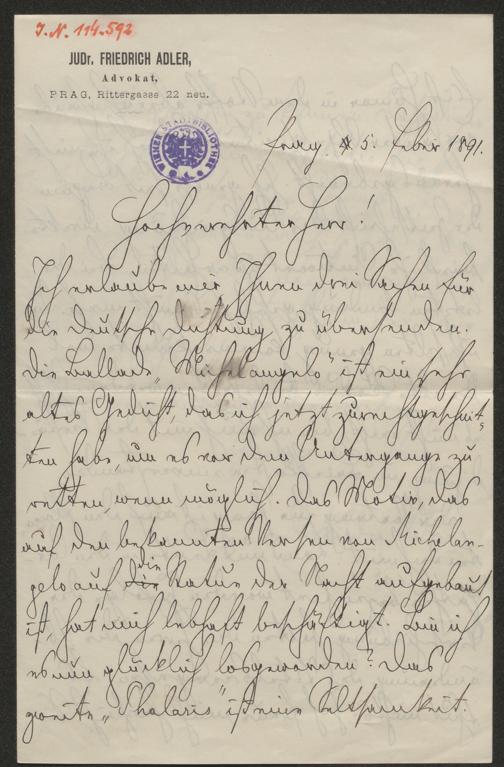 J. N. 114.592
JUDr. FRIEDRICH ADLER,
Advokat,
PRAG, Rittergasse 22 neu.
WIENER STADTBIBLIOTHEK
Prag, 5. Feber 1891.
Hochverehrter Herr!
Ich erlaube mir Ihnen drei Sachen für
die deutsche Dichtung zu übersenden.
Die Ballade „Michelangelo" ist ein sehr
altes Gedicht, das ich jetzt zurechtgeschnit-
ten habe, um es vor dem Untergange zu
retten, wenn möglich. Das Motiv, das
auf den bekannten Versen von Michelan-
gelo auf die Statue der Nacht aufgebaut
ist, hat mich lebhaft beschäftigt. Bin ich
es nun glücklich losgeworden? Das
zweite „Phalaris" ist eine Seltsamkeit.